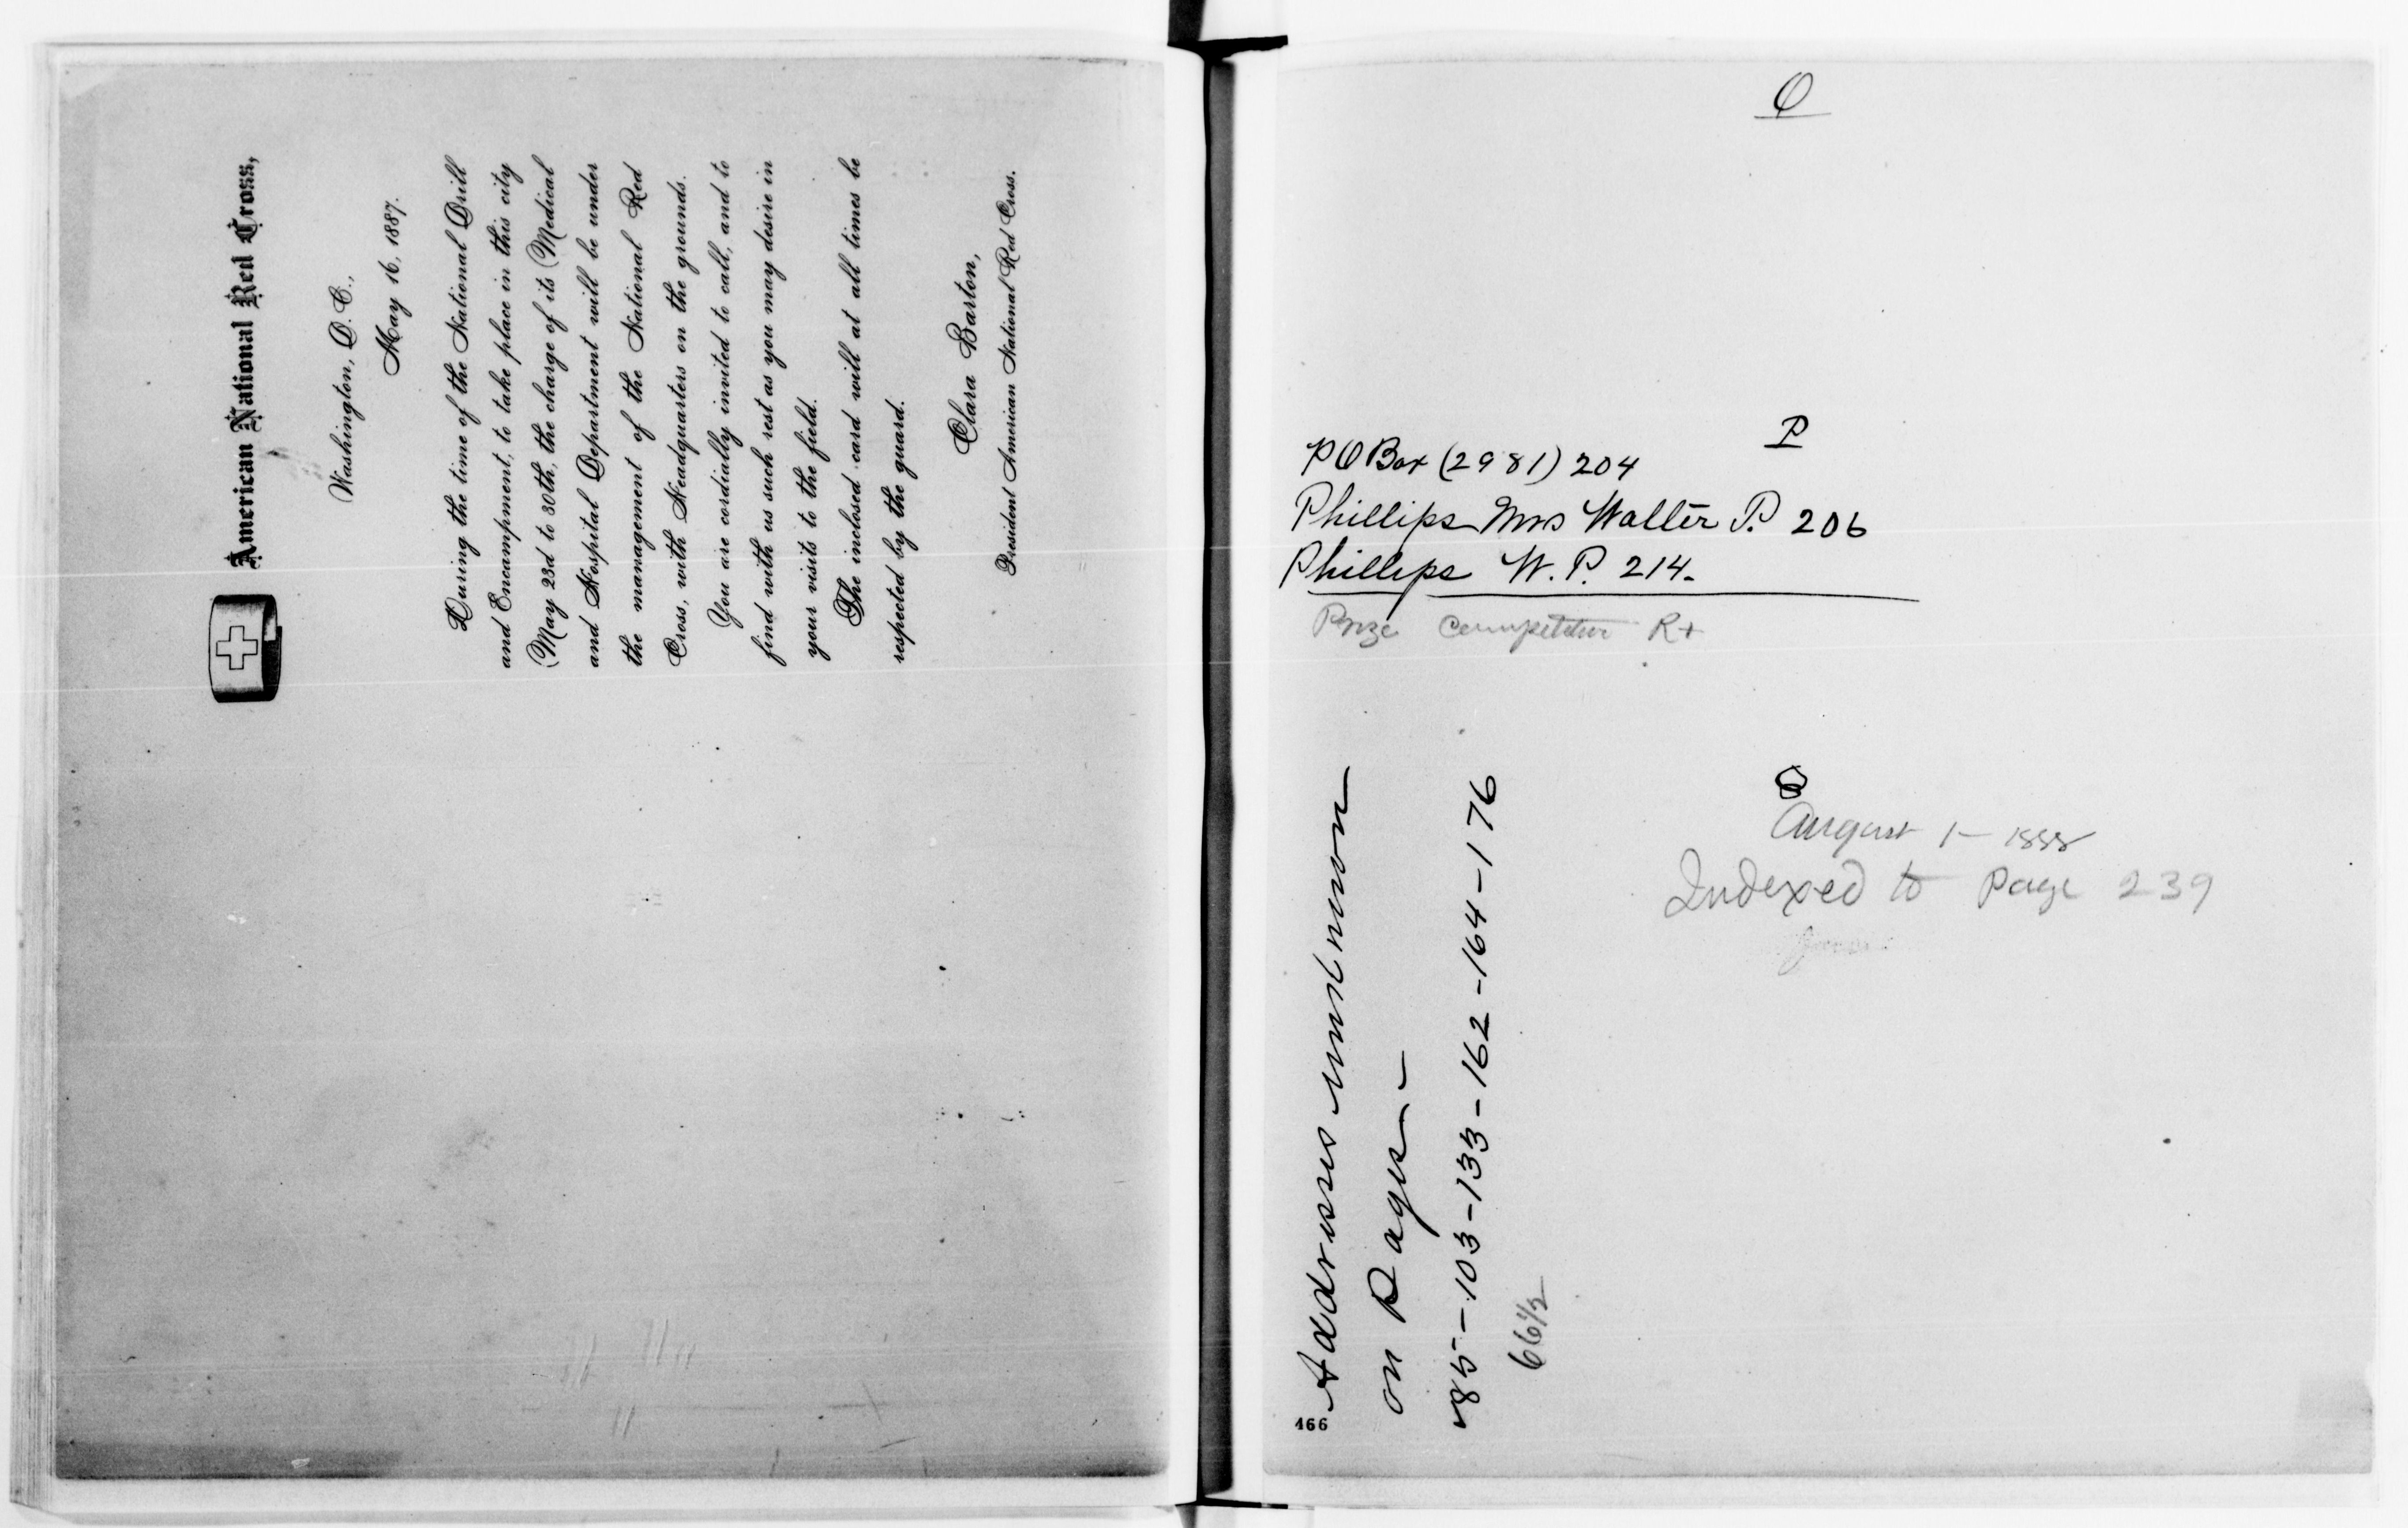 American National Red Cross,
Washington, D. C.,
May 16, 1887.
During the time of the National Drill
and Encampment, to take place in this city
May 23d to 30th, the charge of its Medical
and Hospital Department will be under
the management of the National Red
Cross, with Headquarters on the grounds.
You are cordially invited to call, and to
find with us such rest as you may desire in
your visits to the field.
The inclosed card will at all times be
respected by the guard.
Clara Barton,
President American National Red Cross.
O
P
P O Box (2981) 204
Phillips Mrs Walter P. 206
Phillips W. P. 214.
Prize Competitor R+
Q
August 1- 1888
Indexed to Page 239
Addresses unknown
on Pages-
85-103-133-162-164-176
66½
166